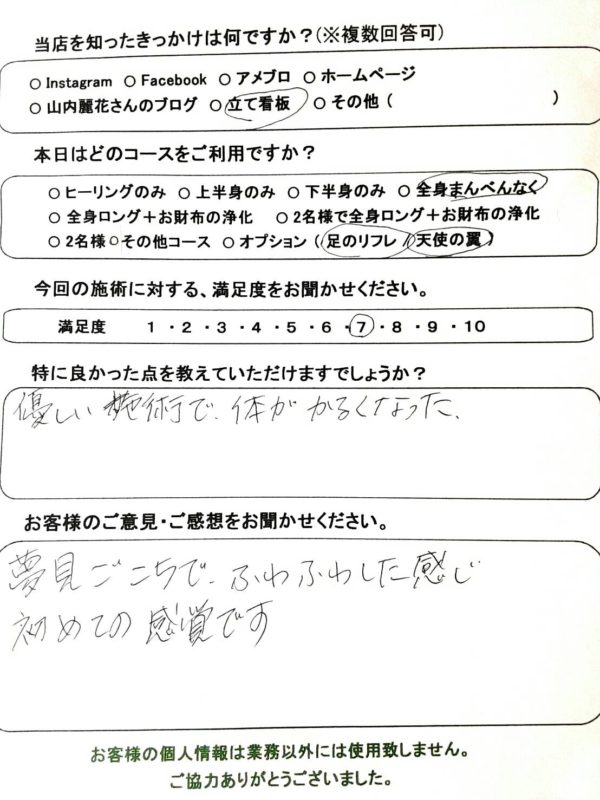 当店を知ったきっかけは何ですか？(※複数回答可)
○ Instagram ○ Facebook ○ アメブロ ○ ホームページ
○ 山内麗花さんのブログ ○ 立て看板 ○ その他 ( )
本日はどのコースをご利用ですか？
○ ヒーリングのみ ○ 上半身のみ ○ 下半身のみ ○ 全身まんべんなく
○ 全身ロング＋お財布の浄化 ○ 2名様で全身ロング＋お財布の浄化
○ 2名様○その他コース ○ オプション ( 足のリフレ / 天使の翼 )
今回の施術に対する、満足度をお聞かせください。
満足度 1 ・ 2 ・ 3 ・ 4 ・ 5 ・ 6 ・ 7 ・ 8 ・ 9 ・ 10
特に良かった点を教えていただけますでしょうか？
優しい施術で、体がかるくなった、
お客様のご意見・ご感想をお聞かせください。
夢見ごこちで、ふわふわした感じ
初めての感覚です
お客様の個人情報は業務以外には使用致しません。
ご協力ありがとうございました。